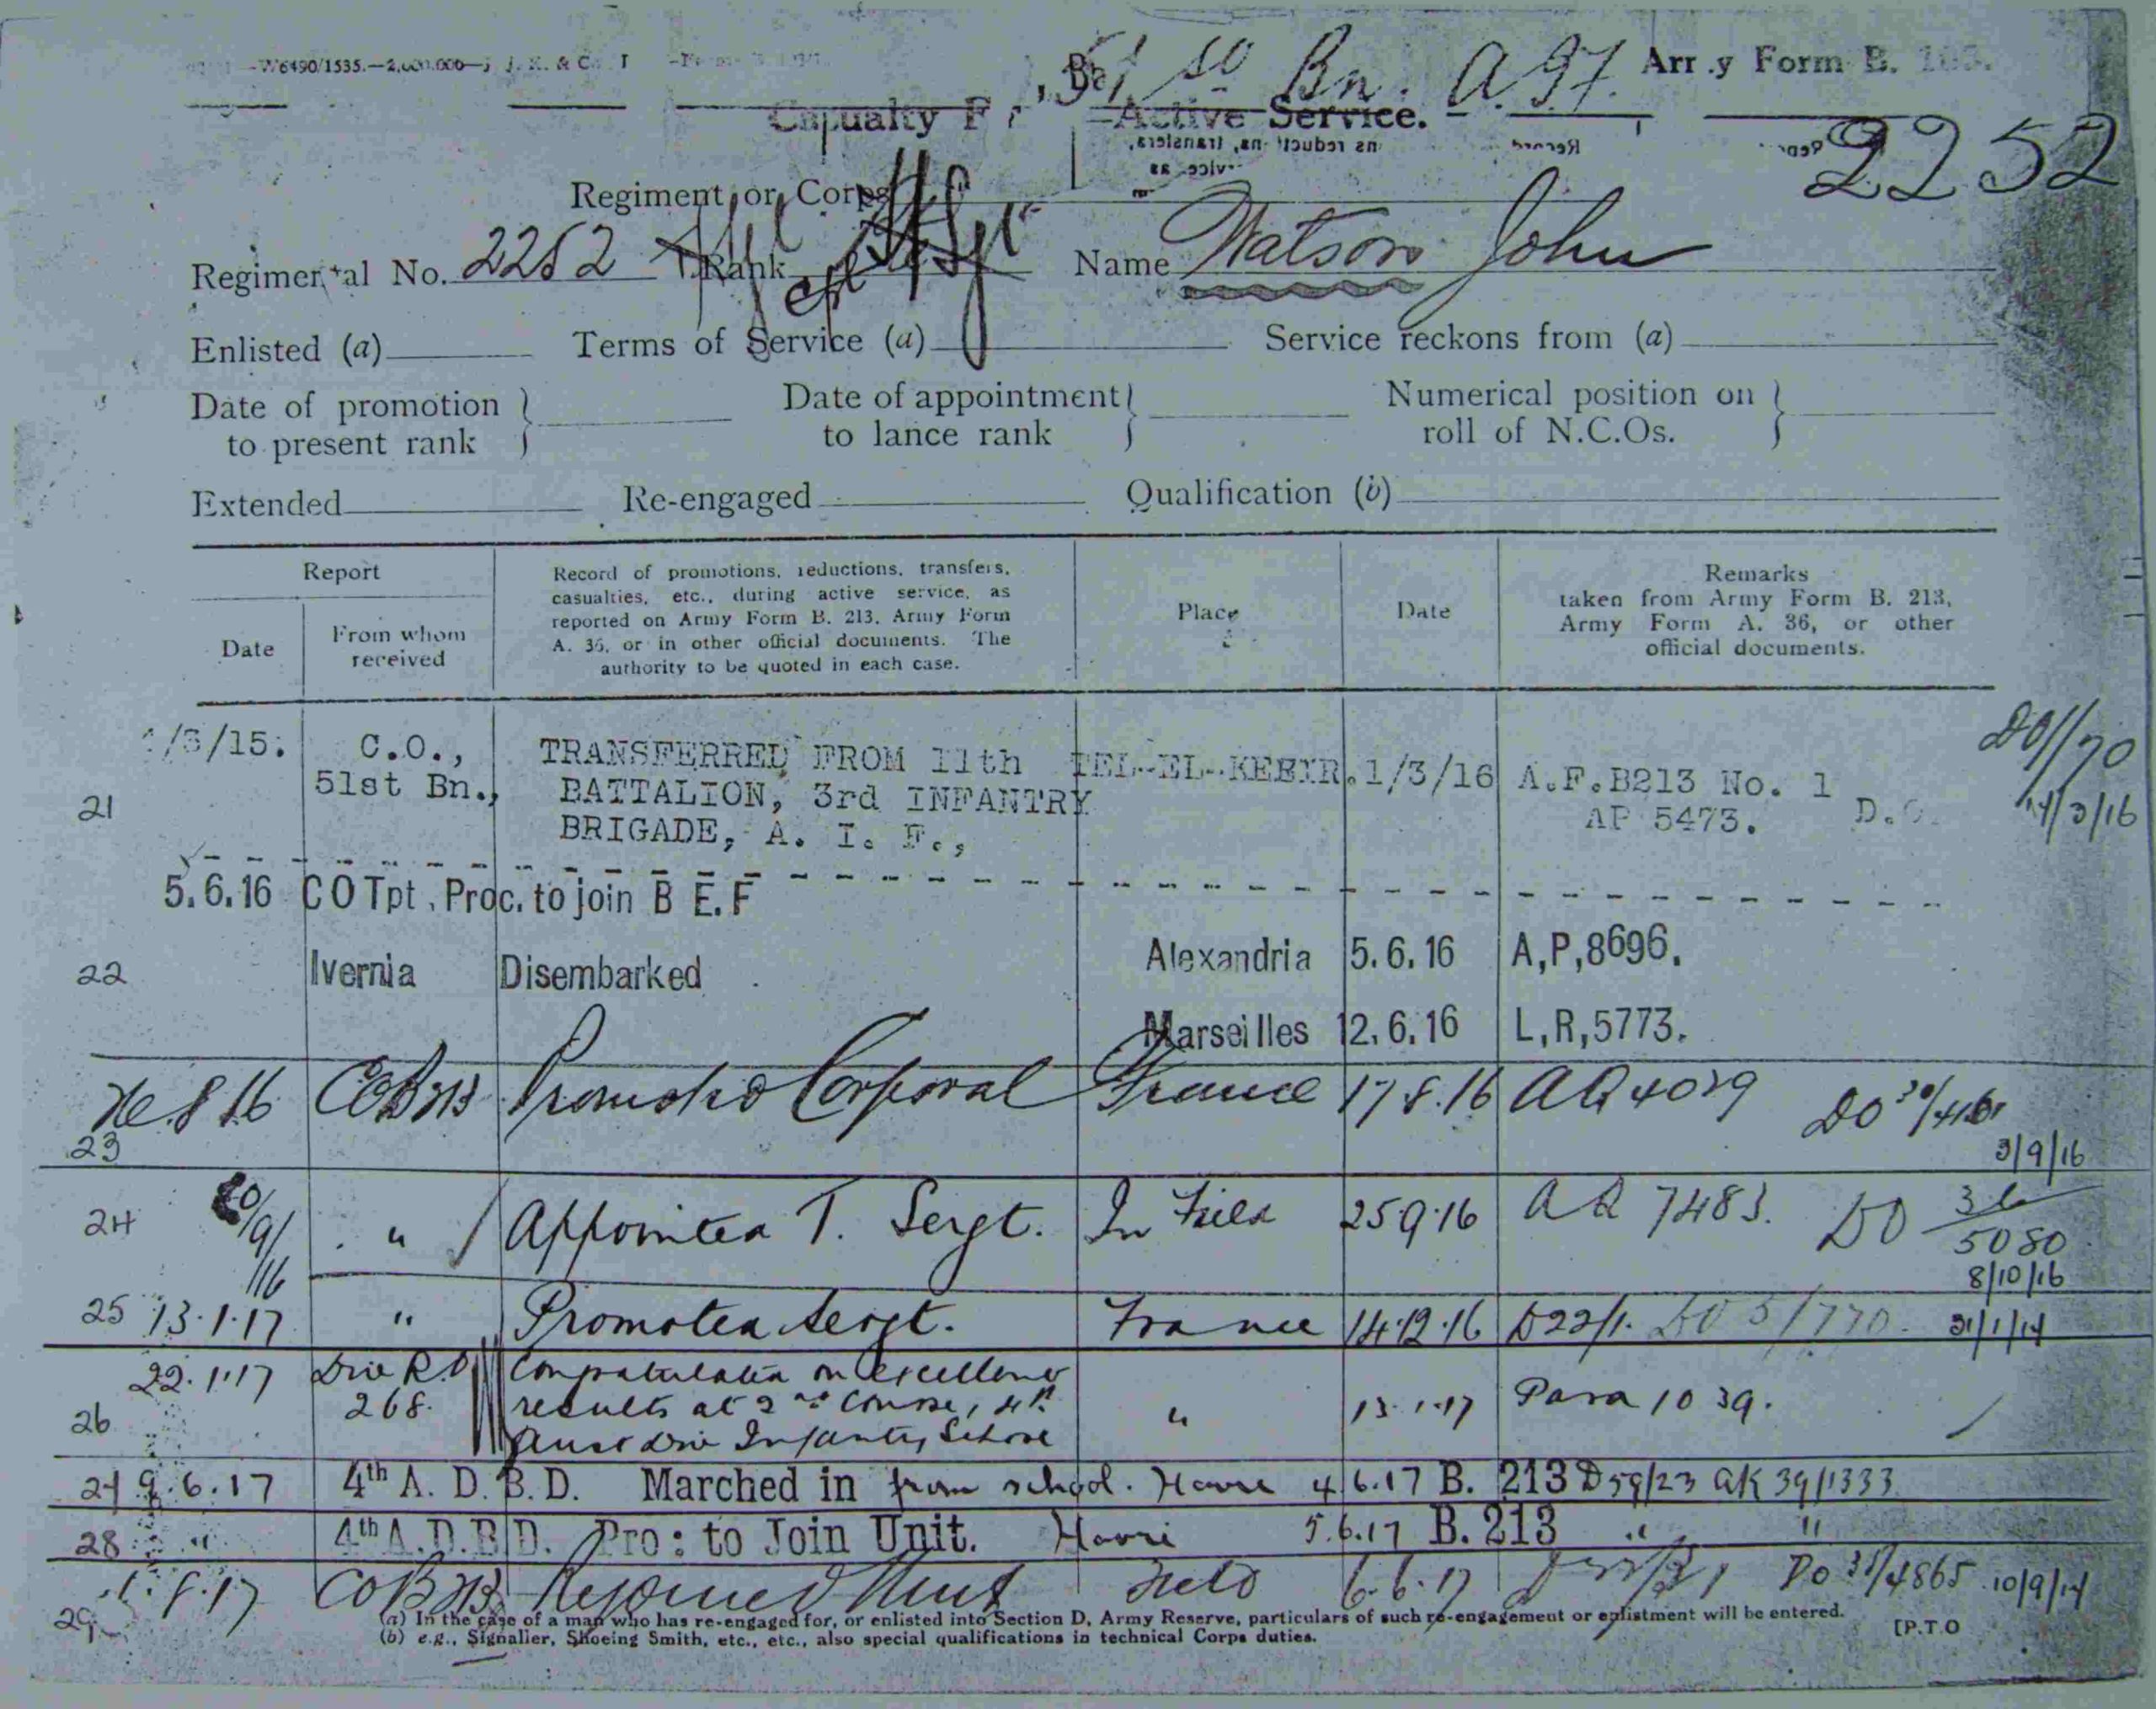 W6490/1535.—2,000,000— J. J. K. & Co.
51st Bn. A.I.F. Army Form B. 103.
Casualty Active Service.
2252
Regiment or Corps
Regimental No. 2252 Rank Cpl Sgt Name Watson John
Enlisted (a) Terms of Service (a) Service reckons from (a)
Date of promotion to present rank Date of appointment to lance rank Numerical position on roll of N.C.Os.
Extended Re-engaged Qualification (b)
Report
Date
From whom received
Record of promotions, reductions, transfers,
casualties, etc., during active service, as
reported on Army Form B. 213, Army Form
A. 36, or in other official documents. The
authority to be quoted in each case.
Place
Date
Remarks
taken from Army Form B. 213,
Army Form A. 36, or other
official documents.
1/3/15. C.O., TRANSFERRED FROM 11th TEL-EL-KEBIR. 1/3/16 A.F.B213 No. 1 DO 1/70
21 51st Bn., BATTALION, 3rd INFANTRY AP 5473. /3/16
BRIGADE, A. I. F.,
5.6.16 CO Tpt. Proc. to join B E.F
Alexandria 5.6.16 A,P,8696.
22 Ivernia Disembarked
Marseilles 12.6.16 L,R,5773.
8 16 CO B213 Promoted Corporal France 17.8.16 AR 4039 DO
23 3/9/16
24 20/9/16 " Appointed T. Sergt. In Field 25 9.16 AR 7483. DO 36/5080
8/10/16
25 13.1.17 " Promoted Sergt. France 14.12.16 D22/1. DO 5/770. 31/1/17
22.1.17 Div R.O Congratulated on excellent
26 268. results at 2nd Course, 4th " 13.1.17 Para 10 39.
Aust Div Infantry School
27 9.6.17 4th A. D. B. D. Marched in from school. Havre 4/6.17 B. 213 D59/23 AK 39/1333
28 " 4th A.D.B.D. Pro: to Join Unit. Havre 5.6.17 B. 213 " "
29 8.17 CO B213 Rejoined Unit Field 6.6.17 DO 31/4865 10/9/17
(a) In the case of a man who has re-engaged for, or enlisted into Section D, Army Reserve, particulars of such re-engagement or enlistment will be entered.
(b) e.g., Signaller, Shoeing Smith, etc., etc., also special qualifications in technical Corps duties. [P.T.O